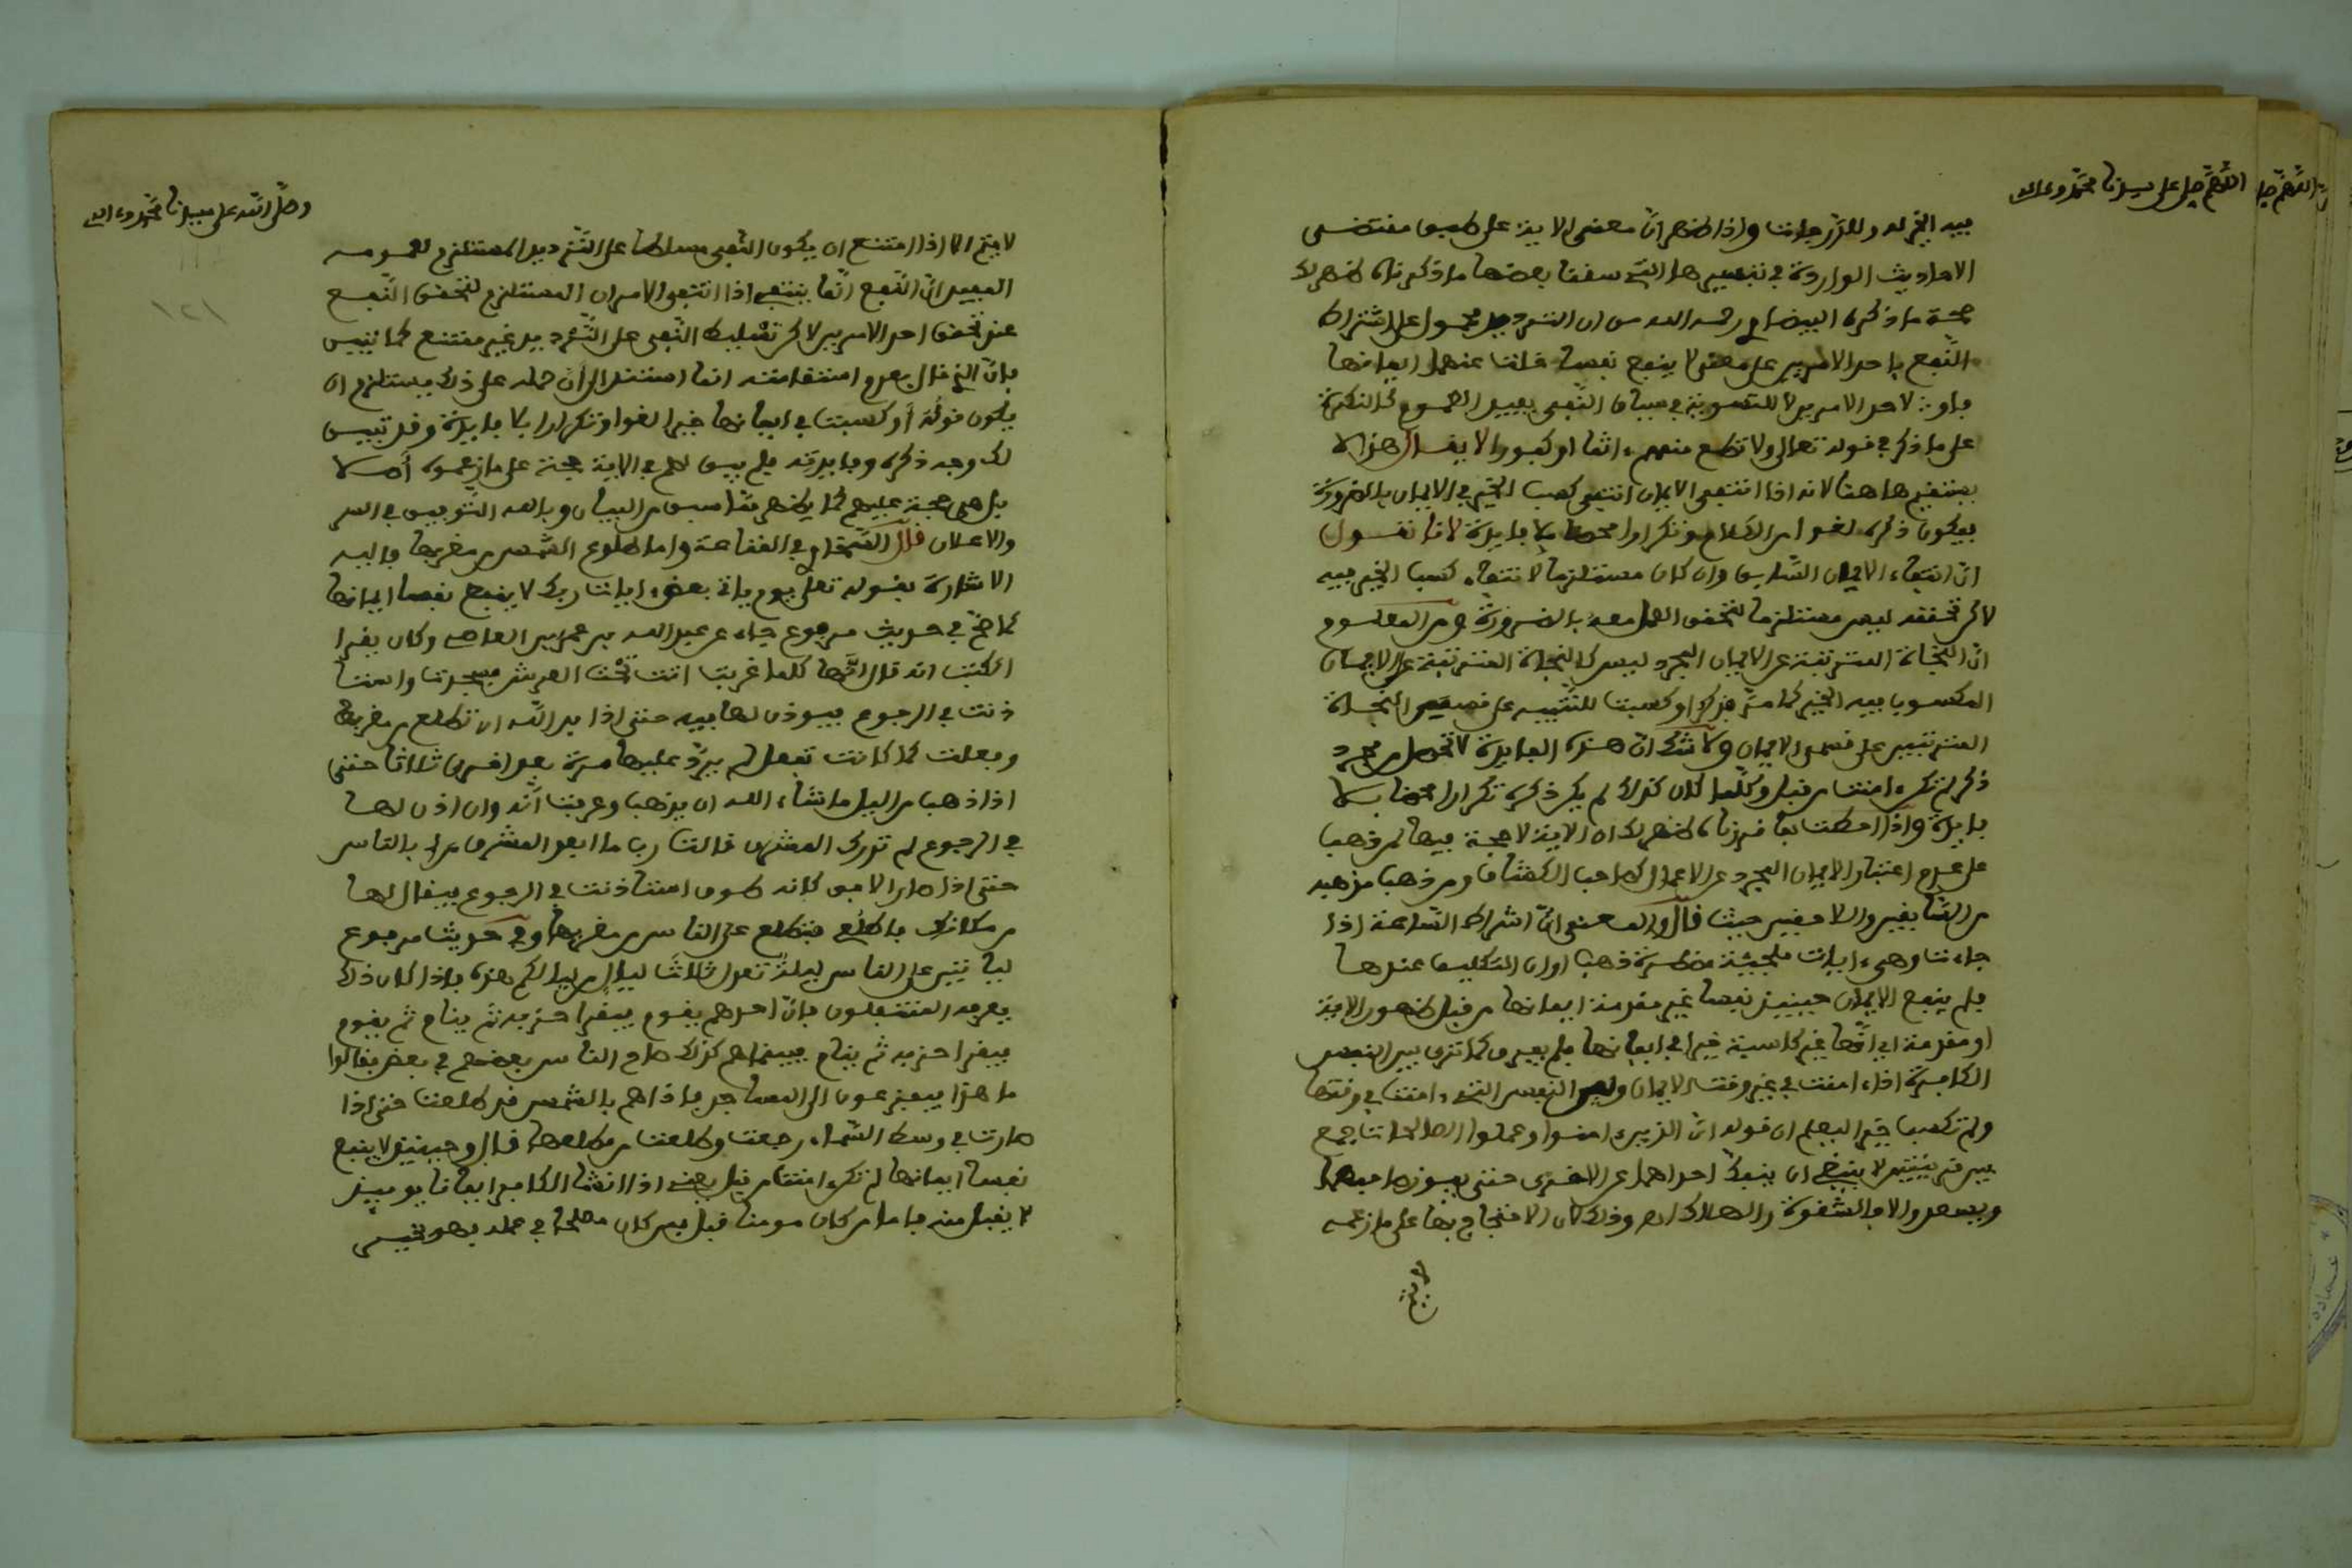 اللهم صل على سيدنا محمد وعلى اله
فيه الخير له وللدرجات واذا ظهر ان معنى الاية على طبق مقتضى
الاحاديث الواردة في تفسيرها التي سقنا بعضها ما ذكرناه ظهر لك
صحة ما ذكره البيضاوي رحمه الله من ان الترديد محمول على اشتراط
النفع باحد الامرين على معنى لا ينفع نفسا خلت عنهما ايمانها
فاو لاحد الامرين لا للتسوية في سياق النفي يفيد العموم كالنكرة
على ما ذكر في قوله تعالى ولا تطع منهم ءاثما او كفورا لا يقال هذا لا
يستقيم هاهنا لانه اذا انتفى الايمان انتفى كسب الخير في الايمان بالضرورة
فيكون ذكره لغوا من الكلام وتكرارا محضا بلا فايدة لانا نقول
ان انتفاء الايمان السابق وان كان مستلزما لانتفاء كسب الخير فيه
لاكن تحققه ليس مستلزما لتحقق العمل معه بالضرورة ومن المعلوم
ان النجاة المترتبة عن الايمان المجرد ليس كالنجاة المترتبة عن الايمان
المكسوب فيه الخير كما مر فذكر او كسبت للتنبيه على قسمي النجاة
المترتبين على قسمي الايمان ولا شك ان هذه الفايدة لا تحصل من مجرد
ذكر لم تكن ءامنت من قبل وكلما كان كذلك لم يكن ذكره تكرارا محضا بلا
فايدة واذا احطت بما قررناه ظهر لك ان الاية لا حجة فيها لمن ذهب
على عدم اعتبار الايمان المجرد عن الاعمال كصاحب الكشاف ومن ذهب مذهبه
من السابقين واللاحقين حيث قال والمعنى ان اشراط الساعة اذا
جاءت وهي ءايات ملجئة مضطرة ذهب اوان التكليف عندها
فلم ينفع الايمان حينيذ نفسا غير مقدمة ايمانها من قبل ظهور الاية
او مقدمة ايمانها غير كاسبة خيرا في ايمانها فلم يفرق كما ترى بين النفس
الكافرة اذا ءامنت في غير وقت الايمان وبين النفس التي ءامنت في وقتها
ولم تكسب خيرا ليعلم ان قوله ان الذين ءامنوا وعملوا الصالحات جمع
بين قرينتين لا ينبغي ان ينفك احداهما عن الاخرى حتى يفوز صاحبهما
ويسعد والا فالشقوة والهلاك اه وذلك لان الاحتجاج بها على ما زعمه
لا يتم
وصلى الله على سيدنا محمد وعلى اله
١٢١
لا يتم الا اذا امتنع ان يكون النفي مسلطا على الترديد المستلزم لعمومه
المفيد ان النفع انما ينتفي اذا انتفى الامران المستلزم لتحقق النفع
عند تحقق احد الامرين لاكن تسليط النفي على الترديد غير ممتنع كما تبين
فان قال بعدم استقامته انما استند الى ان حمله على ذلك يستلزم ان
يكون قوله أو كسبت في ايمانها خيرا لغوا وتكرارا بلا فايدة وقد تبين
لك وجه ذكره وفايدته فلم يبق لهم في الاية حجة على ما زعموه أصلا
بل هي حجة عليهم كما يظهر مما سبق من البيان وبالله التوفيق في السر
والاعلان قال السخاوي في القناعة واما طلوع الشمس من مغربها فاليه
الاشارة بقوله تعلى يوم ياتي بعض ءايات ربك لا ينفع نفسا ايمانها
كما صح في حديث مرفوع جاء عن عبد الله بن عمرو بن العاصي وكان يقرا
الكتب انه قال انها كلما غربت اتت تحت العرش فسجدت واستا
ذنت في الرجوع فيوذن لها فيه حتى اذا بدا لله ان تطلع من مغربها
وفعلت كما كانت تفعل لم يرد عليها مرة بعد اخرى ثلاثا حتى
اذا ذهب من اليل ما شاء الله ان يذهب وعرفت أنه وان اذن لها
في الرجوع لم تدرك المشرق قالت رب ما ابعد المشرق من لي بالناس
حتى اذا صار الافق كانه طوق استاذنت في الرجوع فيقال لها
من مكانك فاطلعي فتطلع على الناس من مغربها وفي حديث مرفوع
لياتين على الناس ليلة تعدل ثلاث ليال من لياليكم هذه فاذا كان ذلك
يعرفه المتنفلون فان احدهم يقوم فيقرا حزبه ثم ينام ثم يقوم
فيقرا حزبه ثم ينام فبينما هم كذلك صاح الناس بعضهم في بعض فقالوا
ما هذا فيفزعون الى المساجد فاذا هم بالشمس قد طلعت حتى اذا
صارت في وسط السماء رجعت وطلعت من مطلعها قال وحينيذ لا ينفع
نفسا ايمانها لم تكن ءامنت من قبل يعني اذا انشا الكافر ايمانا يوميذ
لا يقبل منه فاما من كان مومنا قبل فمن كان مصلحا في عمله فهو بخير